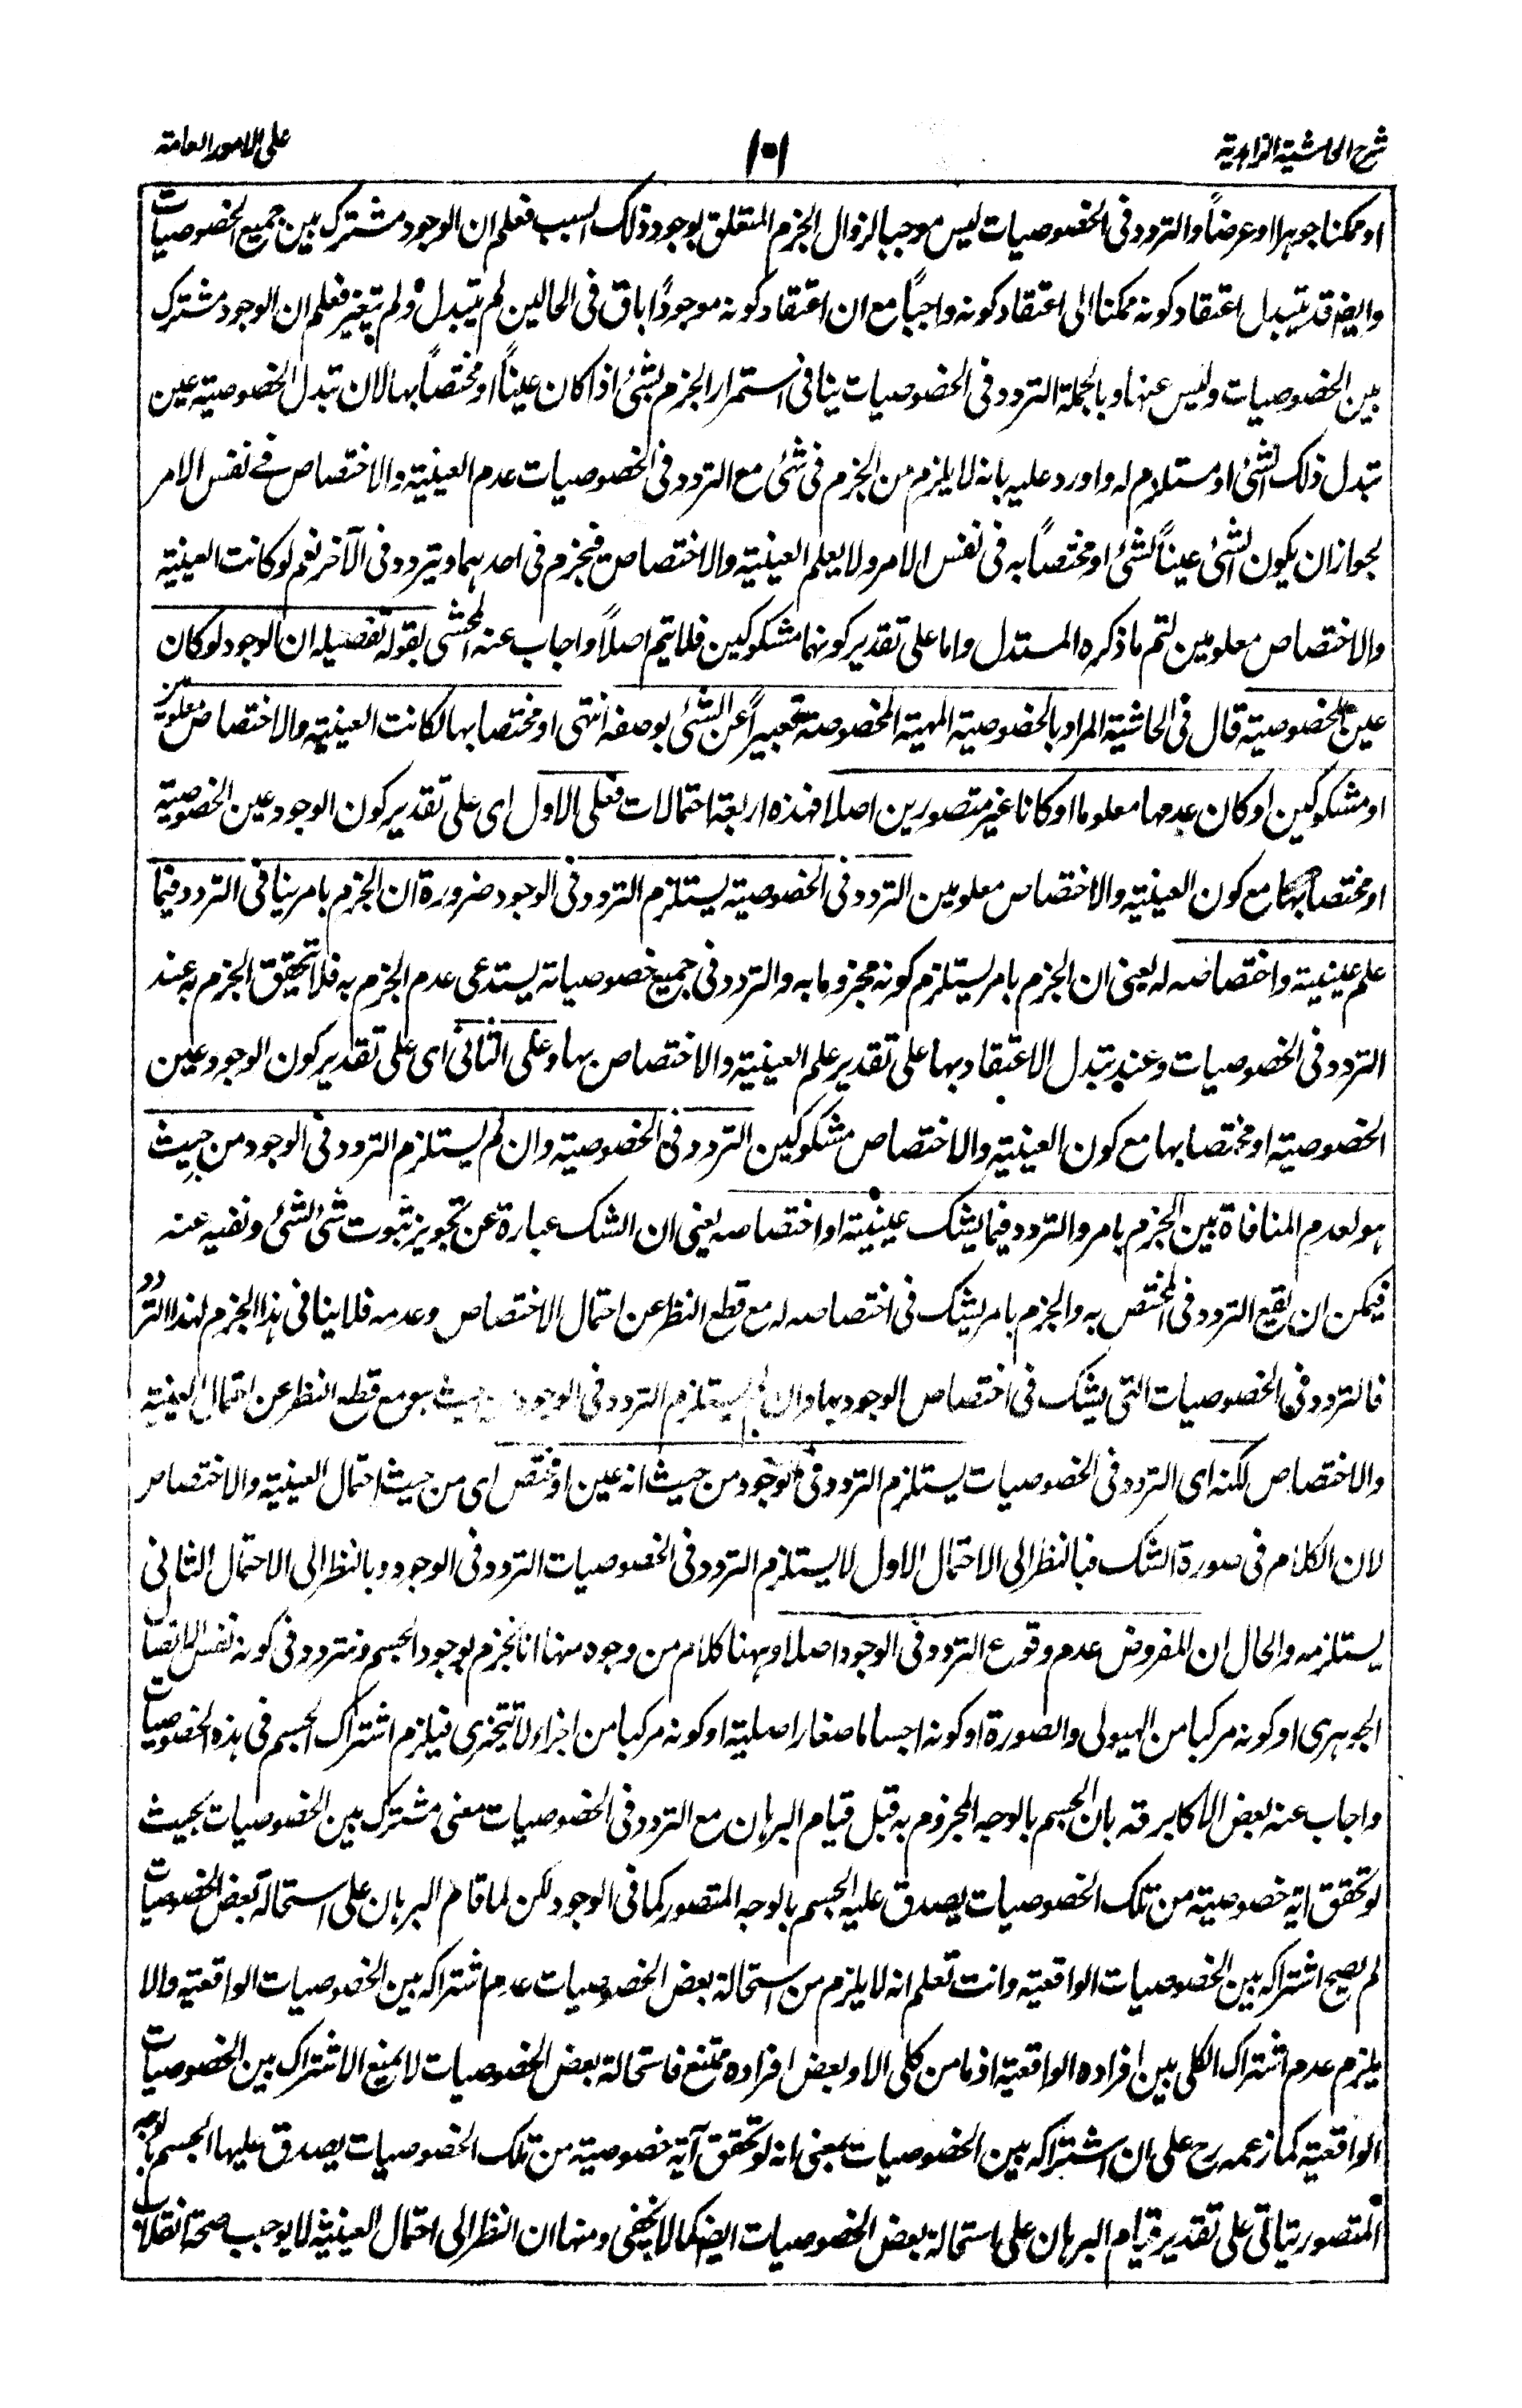 شرح الحاشية الزاهدية
١٠١
على الامور العامة
او ممكنا جوهرا او عرضاً والتردد فى الخصوصيات ليس موجبا لزوال الجزم المتعلق بوجود ذلك السبب فعلم ان الوجود مشترك بين جميع الخصوصيات
وايضا قد يتبدل اعتقاد كونه ممكنا الى اعتقاد كونه واجباً مع ان اعتقاد كونه موجوداً باق فى الحالين لم يتبدل ولم يتغير فعلم ان الوجود مشترك
بين الخصوصيات وليس عنها وبالجملة التردد فى الخصوصيات ينافى استمرار الجزم لشئ اذا كان عيناً او مختصاً بها لان تبدل الخصوصية عين
تبدل ذلك الشئ او مستلزم له واورد عليه بانه لا يلزم من الجزم فى شئ مع التردد فى الخصوصيات عدم العينية والاختصاص فى نفس الامر
لجواز ان يكون الشئ عيناً لشئ او مختصاً به فى نفس الامر ولا يعلم العينية والاختصاص فيجزم فى احدهما ويتردد فى الآخر نعم لو كانت العينية
والاختصاص معلومين لتم ما ذكره المستدل واما على تقدير كونهما مشكوكين فلا يتم اصلاً واجاب عنه المحشى بقوله تفصيله ان الوجود لو كان
عين الخصوصية قال فى الحاشية المراد بالخصوصية المهية المخصوصة تعبيراً عن الشئ بوصفه انتهى او مختصا بها لكانت العينية والاختصاص معلومين
او مشكوكين او كان عدمها معلوما او كانا غير متصورين اصلا فهذه اربعة احتمالات فعلى الاول اى على تقدير كون الوجود عين الخصوصية
او مختصا بها مع كون العينية والاختصاص معلومين التردد فى الخصوصية يستلزم التردد فى الوجود ضرورة ان الجزم بامر ينافى التردد فيما
علم عينية واختصاصه له يعنى ان الجزم بامر يستلزم كونه مجزوما به والتردد فى جميع خصوصياته يستدعى عدم الجزم به فلا يتحقق الجزم به عند
التردد فى الخصوصيات وعند تبدل الاعتقاد بها على تقدير علم العينية والاختصاص بها وعلى الثانى اى على تقدير كون الوجود عين
الخصوصية او مختصا بها مع كون العينية والاختصاص مشكوكين التردد فى الخصوصية وان لم يستلزم التردد فى الوجود من حيث
هو لعدم المنافاة بين الجزم بامر والتردد فيما يشك عينية او اختصاصه يعنى ان الشك عبارة عن تجويز ثبوت شئ لشئ ونفيه عنه
فيمكن ان يقع التردد فى المختص به والجزم بامر يشك فى اختصاصه له مع قطع النظر عن احتمال الاختصاص وعدمه فلا ينافى هذا الجزم لهذا التردد
فالتردد فى الخصوصيات التى يشك فى اختصاص الوجود بها وان لم يستلزم التردد فى الوجود من حيث هو مع قطع النظر عن احتمال العينية
والاختصاص لكنه اى التردد فى الخصوصيات يستلزم التردد فى الوجود من حيث انه عين او مختص اى من حيث احتمال العينية والاختصاص
لان الكلام فى صورة الشك فبالنظر الى الاحتمال الاول لا يستلزم التردد فى الخصوصيات التردد فى الوجود وبالنظر الى الاحتمال الثانى
يستلزمه والحال ان المفروض عدم وقوع التردد فى الوجود اصلا وههنا كلام من وجوه منها انا نجزم بوجود الجسم ونتردد فى كونه نفس الاتصال
الجوهرى او كونه مركبا من الهيولى والصورة او كونه اجساما صغارا صلبة او كونه مركبا من اجزاء لا تتجزى فيلزم اشتراك الجسم فى هذه الخصوصيات
واجاب عنه بعض الاكابر قه بان الجسم بالوجه المجزوم به قبل قيام البرهان مع التردد فى الخصوصيات معنى مشترك بين الخصوصيات بحيث
لو تحقق اية خصوصية من تلك الخصوصيات يصدق عليه الجسم بالوجه المتصور كما فى الوجود لكن لما قام البرهان على استحالة بعض الخصوصيات
لم يصح اشتراكه بين الخصوصيات الواقعية وانت تعلم انه لا يلزم من استحالة بعض الخصوصيات عدم اشتراكه بين الخصوصيات الواقعية والا
يلزم عدم اشتراك الكلى بين افراده الواقعية اذ ما من كلى الا وبعض افراده ممتنع فاستحالة بعض الخصوصيات لا يمنع الاشتراك بين الخصوصيات
الواقعية كما زعمه رح على ان اشتراكه بين الخصوصيات بمعنى انه لو تحقق آية خصوصية من تلك الخصوصيات يصدق عليها الجسم بالوجه
المتصور يتاتى على تقدير قيام البرهان على استحالة بعض الخصوصيات ايضا كما لا يخفى ومنها ان النظر الى احتمال العينية لا يوجب صحة انقلاب